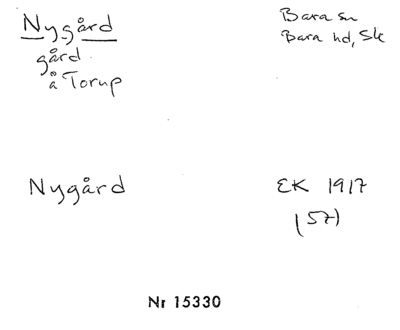 Nygård
gård
å Torup
Bara sn
Bara hd, Sk
Nygård
EK 1917
(57)
Nr 15330